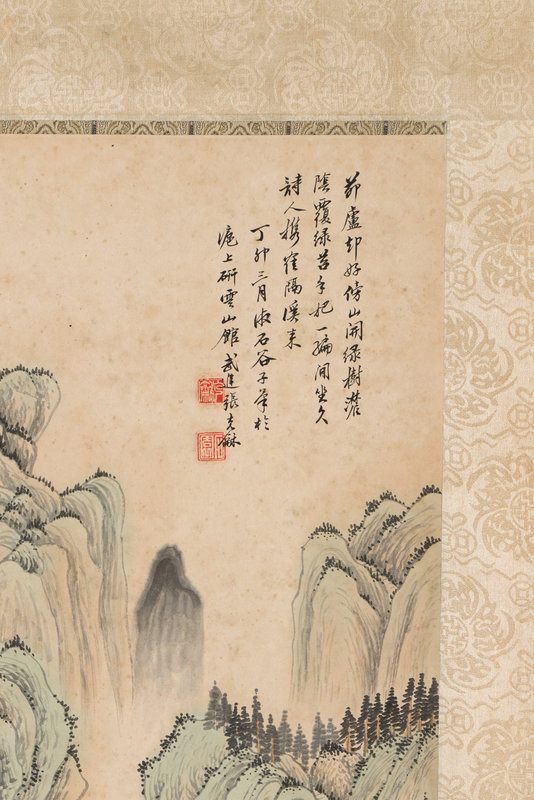 茆廬却好傍山開綠樹濃
陰覆綠苔手把一編閒坐久
詩人携雀隔溪來
丁卯三月 石谷子筆於
滬上研雲山館武進張克龢